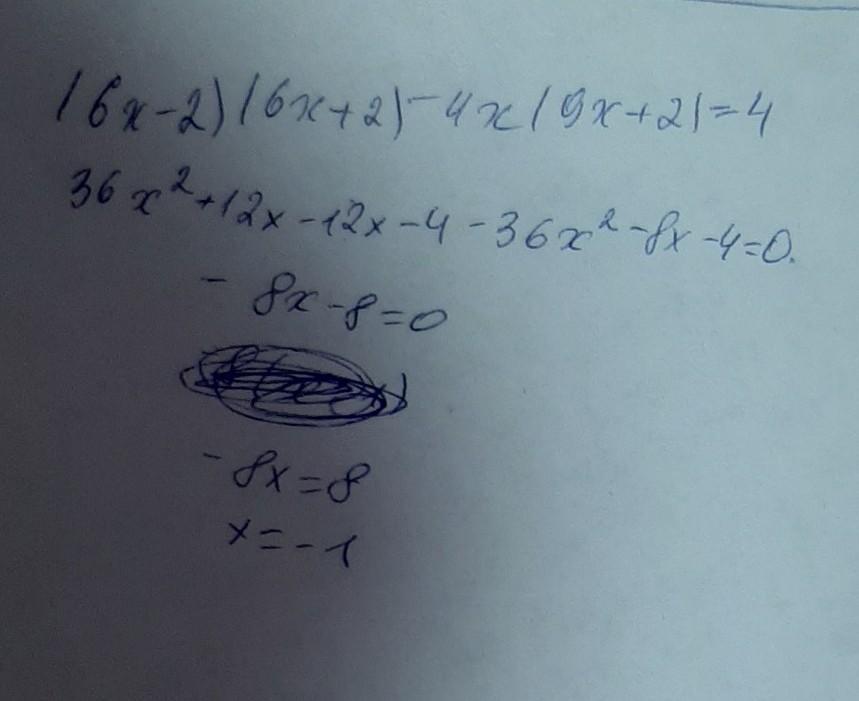 (6x-2)(6x+2)-4x(9x+2)=4
36x²+12x-12x-4-36x²-8x-4=0.
-8x-8=0
-8x=8
x=-1